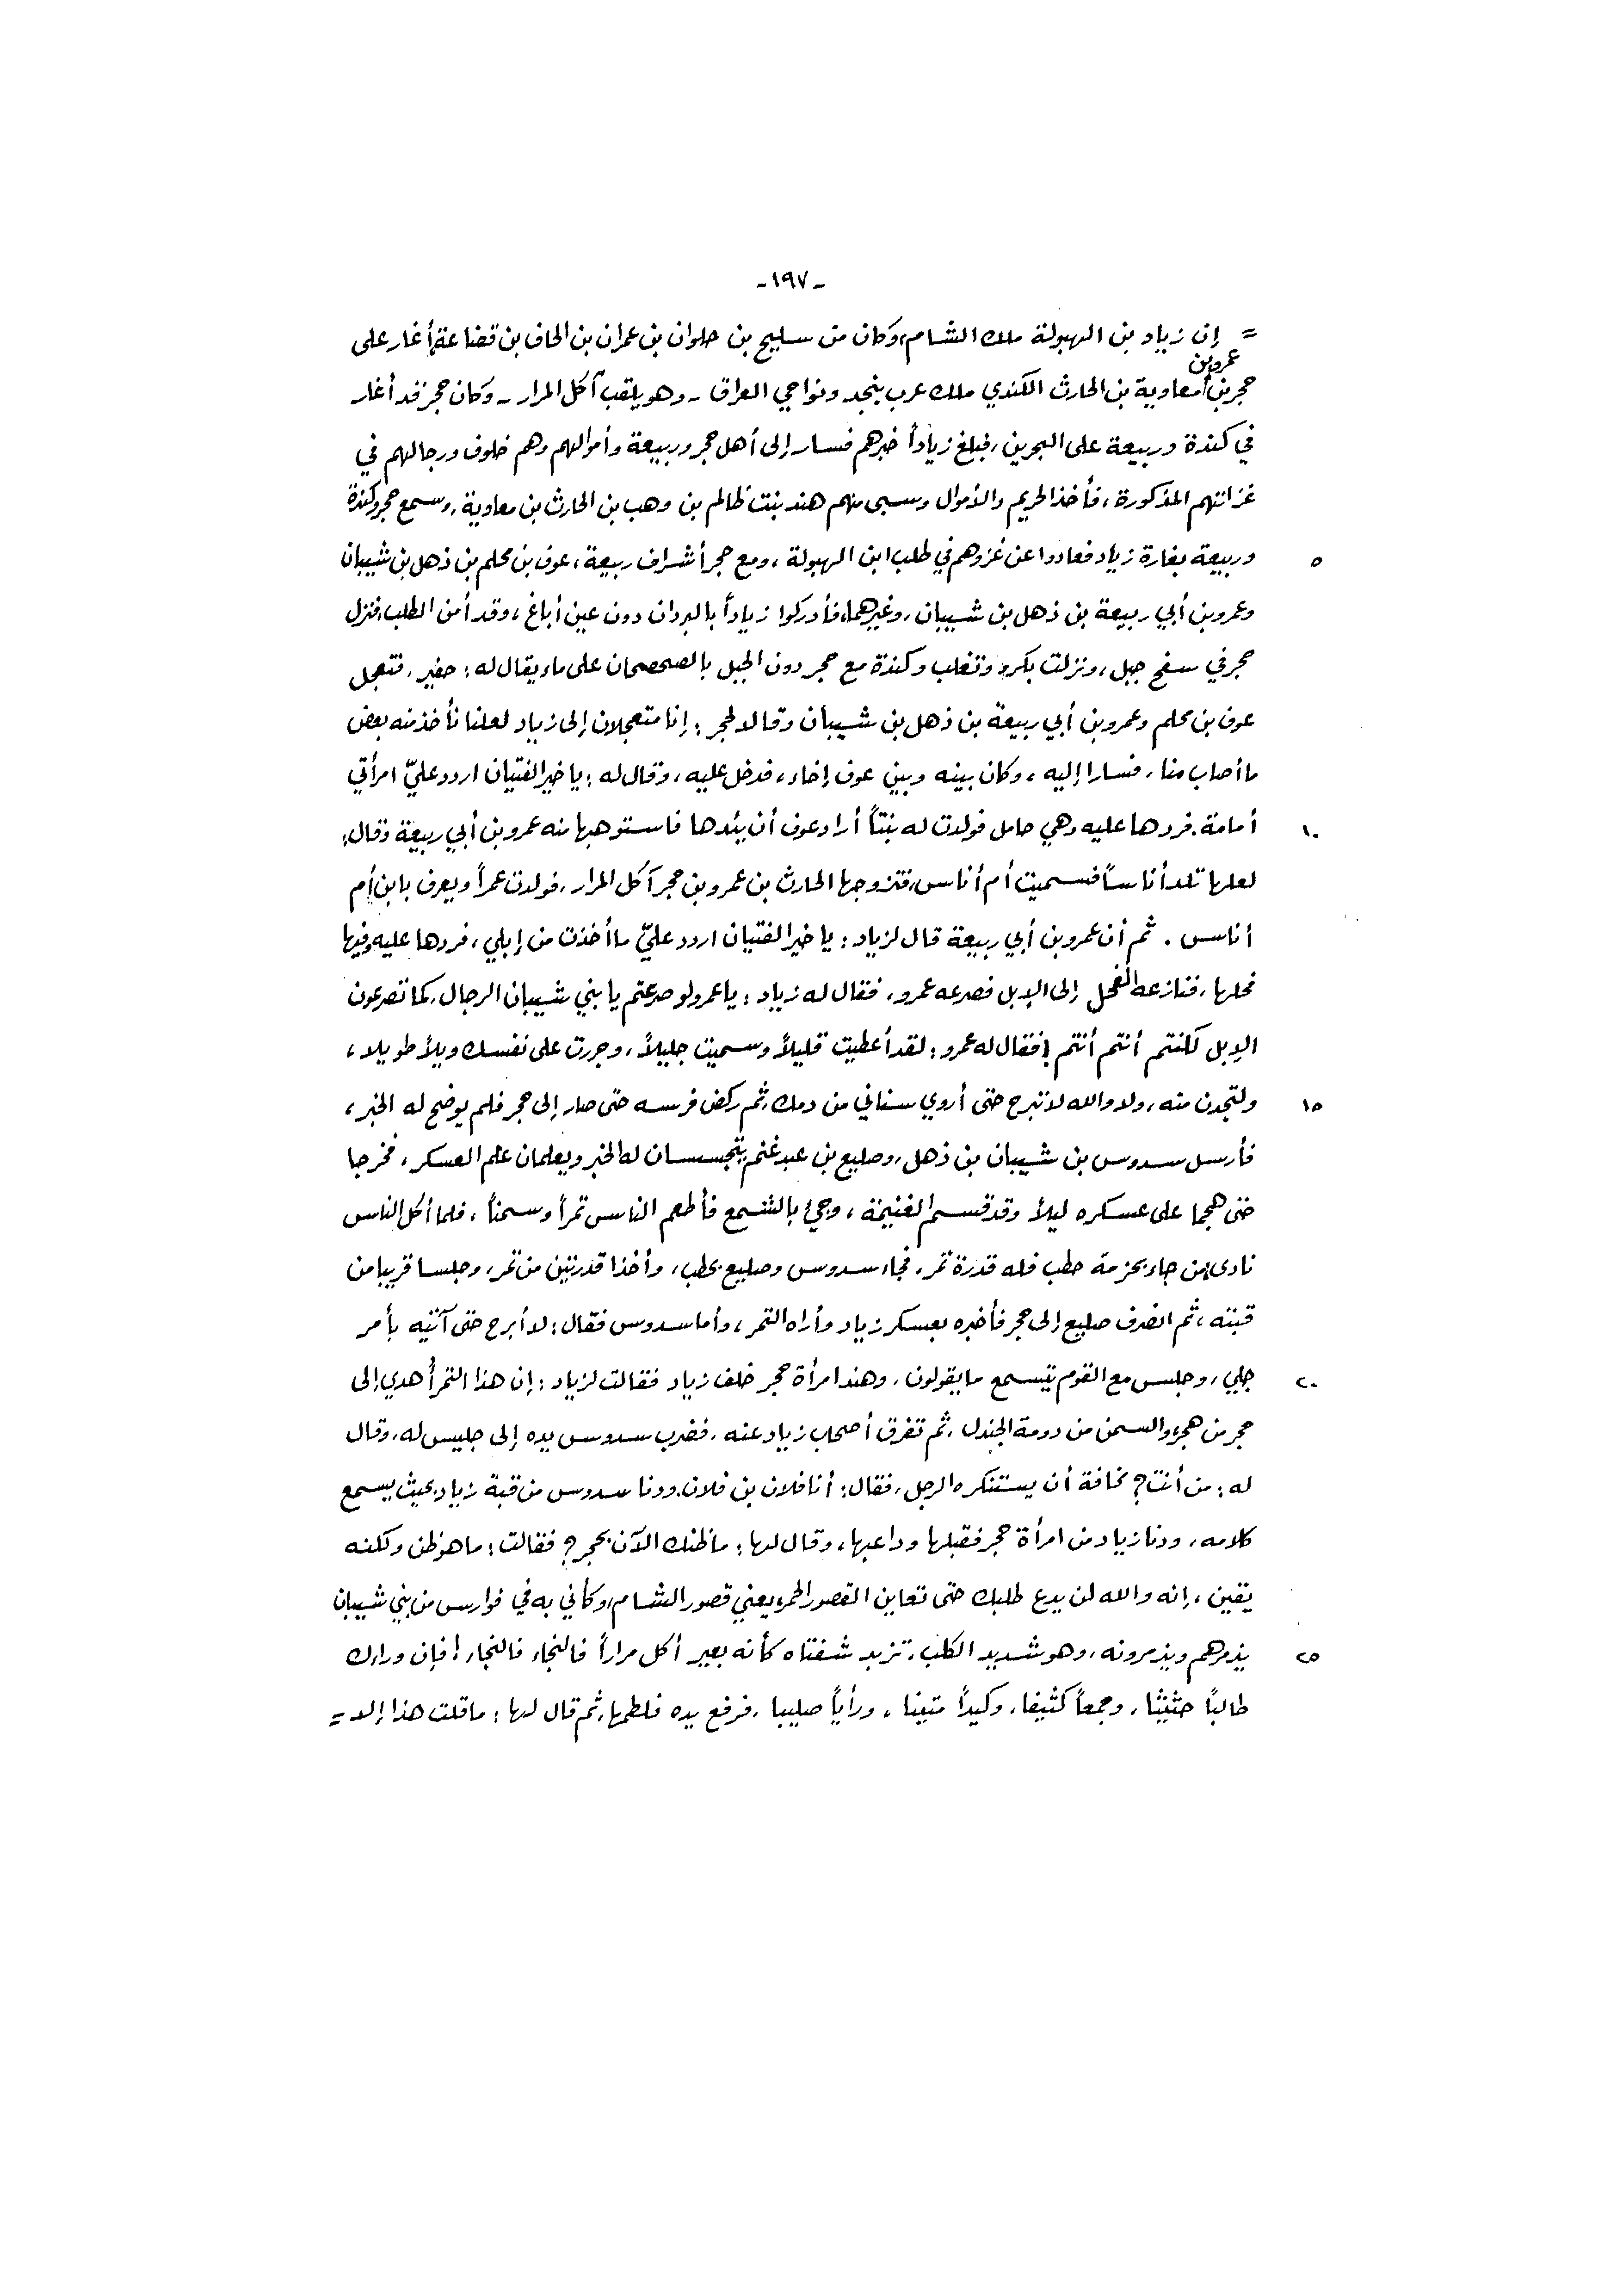 -١٩٧-
= إن زياد بن الهبولة ملك الشام، وكان من سليح بن حلوان بن عمران بن الحاف بن قضاعة، أغار على
عمرو بن
حجر بن معاوية بن الحارث الكندي ملك عرب بنجد ونواحي العراق - وهو يلقب آكل المرار - وكان حجر قد أغار
في كندة وربيعة على البحرين، فبلغ زياداً خبرهم فسار إلى أهل حجر وربيعة وأموالهم وهم خلوف ورجالهم في
غزاتهم المذكورة، فأخذ الحريم والأموال وسبى منهم هند بنت ظالم بن وهب بن الحارث بن معاوية، وسمع حجر وكندة
٥ وربيعة بغارة زياد فعادوا عن غزوهم في طلب ابن الهبولة، ومع حجر أشراف ربيعة، عوف بن محلم بن ذهل بن شيبان
وعمرو بن أبي ربيعة بن ذهل بن شيبان، وغيرهما، فأدركوا زياداً بالبردان دون عين أباغ، وقد أمن الطلب، فنزل
حجر في سفح جبل، ونزلت بكر وتغلب وكندة مع حجر دون الجبل بالصحصحان على ماء يقال له: حفير، فتعجل
عوف بن محلم وعمرو بن أبي ربيعة بن ذهل بن شيبان وقالا لحجر: إنا متعجلان إلى زياد لعلنا نأخذ منه بعض
ما أصاب منا، فسارا إليه، وكان بينه وبين عوف إخاء، فدخل عليه، وقال له: يا خير الفتيان اردد عليّ امرأتي
١٠ أمامة. فردها عليه وهي حامل فولدت له بنتاً أراد عوف أن يئدها فاستوهبها منه عمرو بن أبي ربيعة وقال:
لعلها تلد أناساً فسميت أم أناس، فتزوجها الحارث بن عمرو بن حجر آكل المرار، فولدت عمراً ويعرف بابن أم
أناس. ثم أن عمرو بن أبي ربيعة قال لزياد: يا خير الفتيان اردد عليّ ما أخذت من إبلي، فردها عليه وفيها
فحلها، فنازعه الفحل إلى الإبل فصرعه عمرو، فقال له زياد: يا عمرو لو صرعتم يا بني شيبان الرجال، كما تصرعون
الإبل لكنتم أنتم أنتم! فقال له عمرو: لقد أعطيت قليلاً وسميت جليلاً، وجررت على نفسك ويلاً طويلا،
١٥ ولتجدن منه، ولا والله لا تبرح حتى أروي سناني من دمك، ثم ركض فرسه حتى صار إلى حجر فلم يوضح له الخبر،
فأرسل سدوس بن شيبان بن ذهل، وصليع بن عبد غنم يتجسسان له الخبر ويعلمان علم العسكر، فخرجا
حتى هجما على عسكره ليلاً وقد قسم الغنيمة، وجيء بالشمع فأطعم الناس تمراً وسمناً، فلما أكل الناس
نادى: من جاء بحزمة حطب فله قدرة تمر، فجاء سدوس وصليع بحطب، وأخذا قدرتين من تمر، وجلسا قريبا من
قبته، ثم انصرف صليع إلى حجر فأخبره بعسكر زياد وأراه التمر، وأما سدوس فقال: لا أبرح حتى آتيه بأمر
٢٠ جلي، وجلس مع القوم يتسمع ما يقولون، وهند امرأة حجر خلف زياد فقالت لزياد: إن هذا التمر أهدي إلى
حجر من هجر، والسمن من دومة الجندل، ثم تفرق أصحاب زياد عنه، فضرب سدوس يده إلى جليس له، وقال
له: من أنت؟ مخافة أن يستنكره الرجل، فقال: أنا فلان بن فلان. ودنا سدوس من قبة زياد بحيث يسمع
كلامه، ودنا زياد من امرأة حجر فقبلها وداعبها، وقال لها: ما ظنك الآن بحجر؟ فقالت: ما هو ظن ولكنه
يقين، إنه والله لن يدع طلبك حتى تعاين القصور الحمر، يعني قصور الشام، وكأني به في فوارس من بني شيبان
٢٥ يذمرهم ويذمرونه، وهو شديد الكلب، تزبد شفتاه كأنه بعير أكل مراراً فالنجاء فالنجاء! فإن وراءك
طالباً حثيثا، وجمعاً كثيفا، وكيداً متينا، ورأياً صليبا، فرفع يده فلطمها، ثم قال لها: ما قلت هذا إلا =